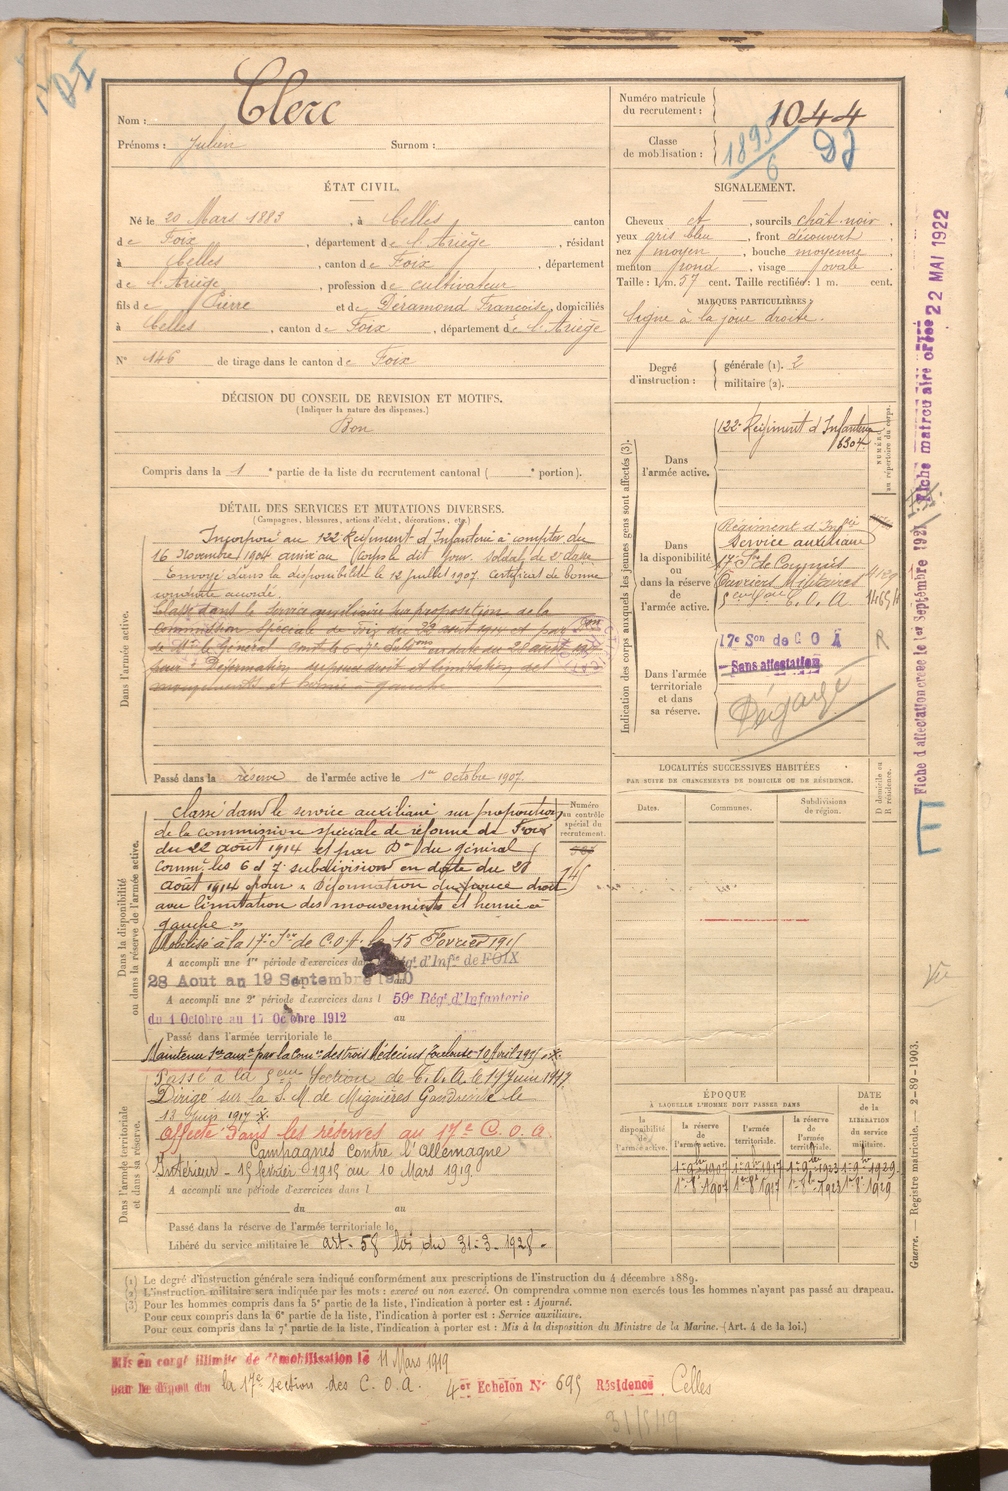 Nom : Clerc
Prénoms : Julien Surnom :
Numéro matricule du recrutement : 1044
Classe de mobilisation : 1895/6
ÉTAT CIVIL.
Né le 20 Mars 1883, à Celles canton
de Foix, département de l'Ariège, résidant
à Celles, canton de Foix, département
de l'Ariège, profession de cultivateur
fils de Pierre et de Déramond Françoise, domiciliés
à Celles, canton de Foix, département de l'Ariège
N° 146 de tirage dans le canton de Foix
SIGNALEMENT.
Cheveux et, sourcils chât. noir,
yeux gris bleu, front découvert,
nez moyen, bouche moyenne,
menton rond, visage ovale.
Taille : 1 m. 57 cent. Taille rectifiée : 1 m. cent.
MARQUES PARTICULIÈRES :
Signe à la joue droite.
Degré d'instruction : générale (1). 2
militaire (2).
DÉCISION DU CONSEIL DE REVISION ET MOTIFS.
(Indiquer la nature des dispenses.)
Bon
Compris dans la 1e partie de la liste du recrutement cantonal ( e portion).
DÉTAIL DES SERVICES ET MUTATIONS DIVERSES.
(Campagnes, blessures, actions d'éclat, décorations, etc.)
Dans l'armée active.
Incorporé au 122 Régiment d'Infanterie à compter du
16 Novembre 1904 arrivé au Corps le dit jour. Soldat de 2e classe
Envoyé dans la disponibilité le 12 Juillet 1907 certificat de bonne
conduite accordé.
Classé dans le service auxiliaire sur proposition de la
Commission Spéciale de Foix du 22 août 1914 et par
le Général Comt les 6 et 7 subdions en date du 28 août
pour Déformation du pouce droit et limitation des
mouvements et hernie à gauche
Passé dans la réserve de l'armée active le 1er octobre 1907.
Dans la disponibilité ou dans la réserve de l'armée active.
Classé dans le service auxiliaire sur proposition
de la commission spéciale de réforme de Foix
du 22 août 1914 et par Don du général
Commt les 6 et 7 subdivisions en date du 28
août 1914 pour « Déformation du pouce droit
avec limitation des mouvements et hernie à
gauche »
Mobilisé à la 17e Son de C.O.A. le 15 Février 1915
A accompli une 1re période d'exercices dans Régt d'Infie de FOIX
28 Aout au 19 Septembre 1910
A accompli une 2e période d'exercices dans l 59e Régt d'Infanterie
du 1 Octobre au 17 Octobre 1912 au
Passé dans l'armée territoriale le
Maintenu Sce auxe par la Comon des trois Médecins Toulouse 10 Avril 1917
Dans l'armée territoriale et dans sa réserve.
Passé à la 5eme Section de C.O.A. le 1er Juin 1917
Dirigé sur la S. M. de Mignières Gondreville le
13 Juin 1917
Affecté dans les réserves au 17e C.O.A.
Campagnes contre l'Allemagne
Intérieur - 15 février 1915 au 10 Mars 1919.
A accompli une période d'exercices dans l
du au
Passé dans la réserve de l'armée territoriale le
Libéré du service militaire le art. 58 loi du 31-3-1928 -
Numéro au contrôle spécial du recrutement.
Indication des corps auxquels les jeunes gens sont affectés (3).
NUMÉRO au répertoire du corps.
Dans l'armée active.
122e Régiment d'Infanterie
6304
Dans la disponibilité ou dans la réserve de l'armée active.
Régiment d'Infie
Service auxiliaire
17e Son de Commis
Ouvriers Militaires
5eme Son C.O.A
Dans l'armée territoriale et dans sa réserve.
17e Son de C O A R
Sans affectation
Dégagé
LOCALITÉS SUCCESSIVES HABITÉES
PAR SUITE DE CHANGEMENTS DE DOMICILE OU DE RÉSIDENCE.
Dates. Communes. Subdivisions de région.
D domicile ou R résidence.
ÉPOQUE
À LAQUELLE L'HOMME DOIT PASSER DANS
DATE de la LIBÉRATION du service militaire.
la disponibilité de l'armée active. la réserve de l'armée active. l'armée territoriale. la réserve de l'armée territoriale.
1er 9bre 1907 1er 9bre 1917 1er 9bre 1923 1er 9bre 1929
1er 8bre 1907 1er 8bre 1917 1er 8bre 1923 1er 8bre 1929
Fiche d affectation créée le 1er Septembre 1921
Fiche matriculaire créée 22 MAI 1922
E
Vu
Guerre. — Registre matricule. — 2-89-1903.
(1) Le degré d'instruction générale sera indiqué conformément aux prescriptions de l'instruction du 4 décembre 1889.
(2) L'instruction militaire sera indiquée par les mots : exercé ou non exercé. On comprendra comme non exercés tous les hommes n'ayant pas passé au drapeau.
(3) Pour les hommes compris dans la 5e partie de la liste, l'indication à porter est : Ajourné.
Pour ceux compris dans la 6e partie de la liste, l'indication à porter est : Service auxiliaire.
Pour ceux compris dans la 7e partie de la liste, l'indication à porter est : Mis à la disposition du Ministre de la Marine. (Art. 4 de la loi.)
Mis en congé illimité de démobilisation le 11 Mars 1919
par le dépôt du la 17e section des C.O.A. 4er Echelon N° 695 Résidence Celles
31/5/19